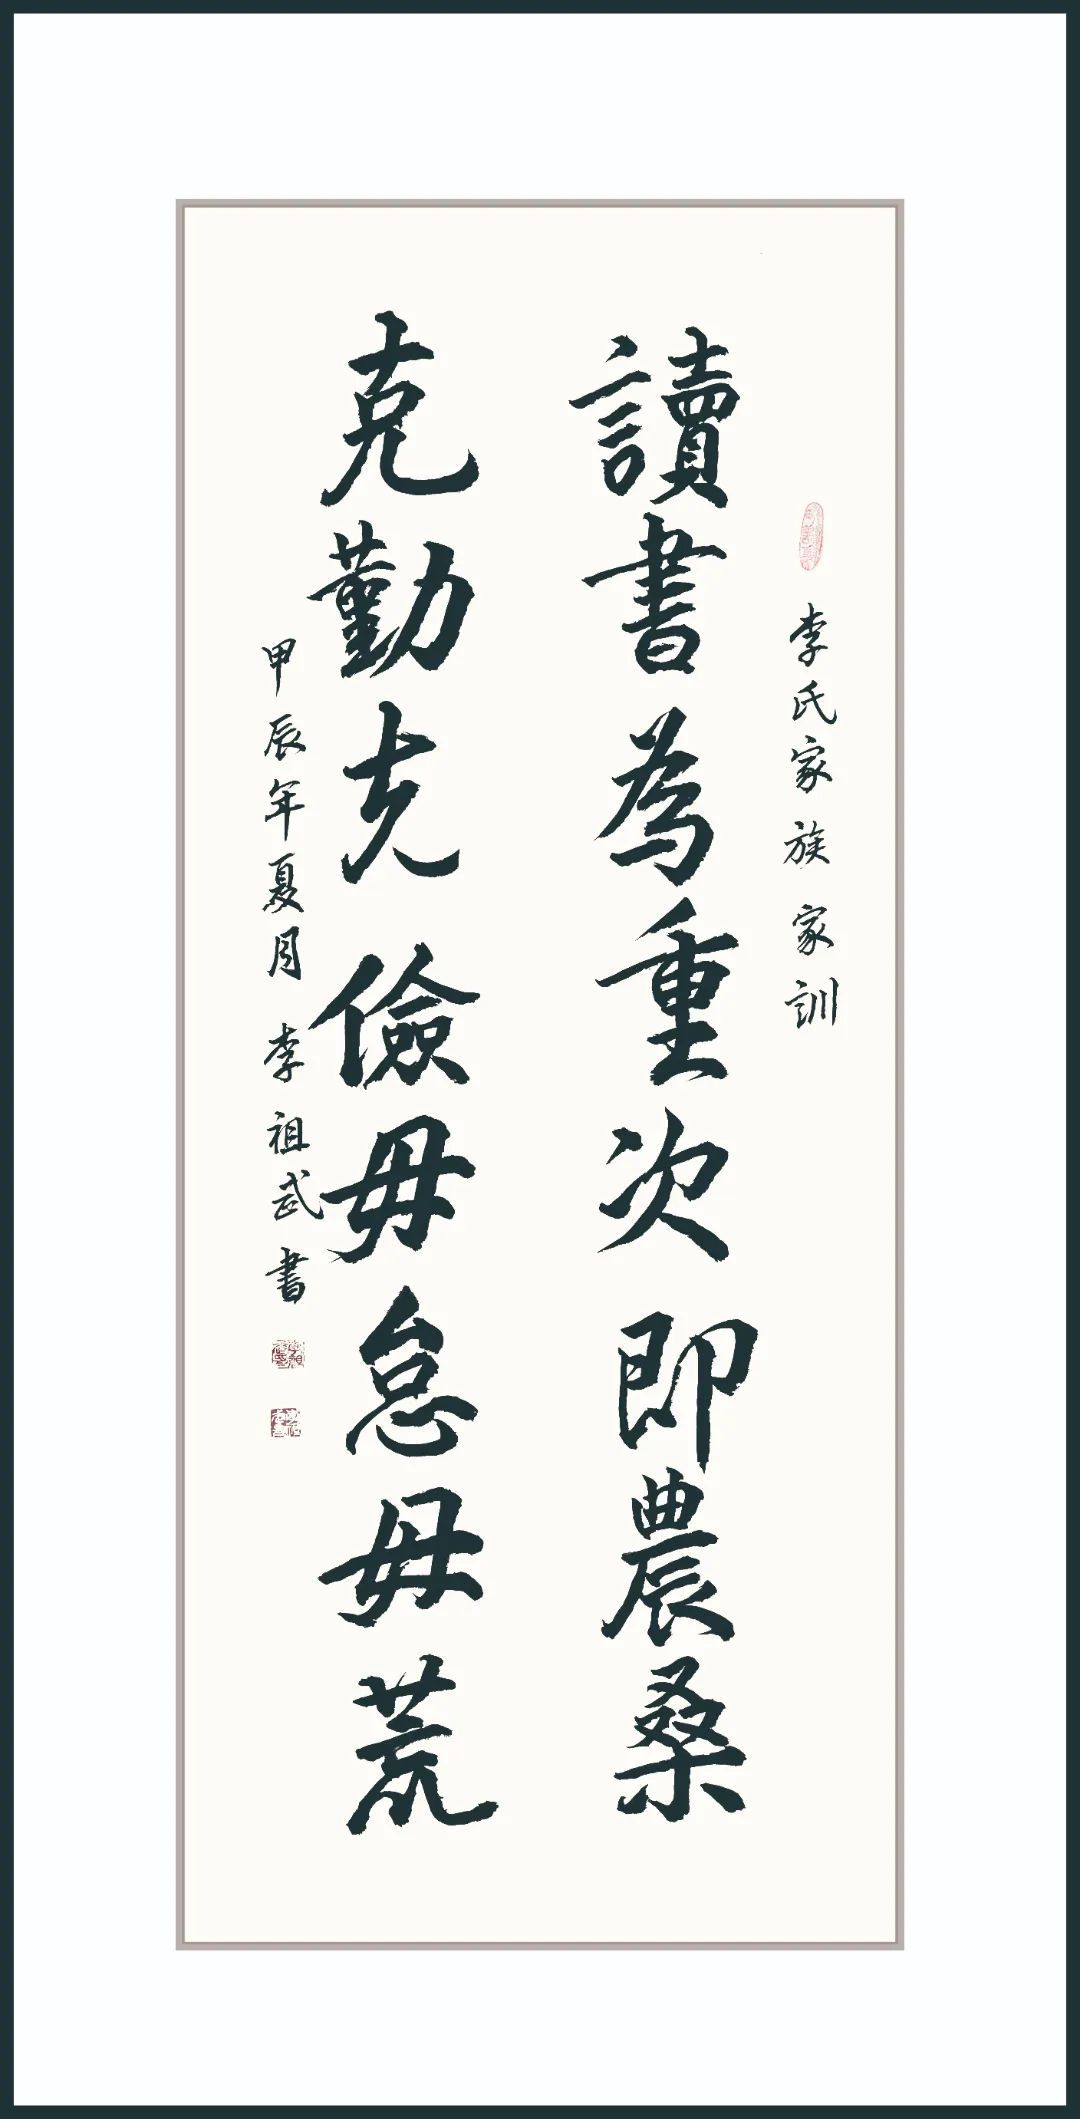 李氏家族家訓
讀書為重次即農桑
克勤克儉毋怠毋荒
甲辰年夏月 李祖武書